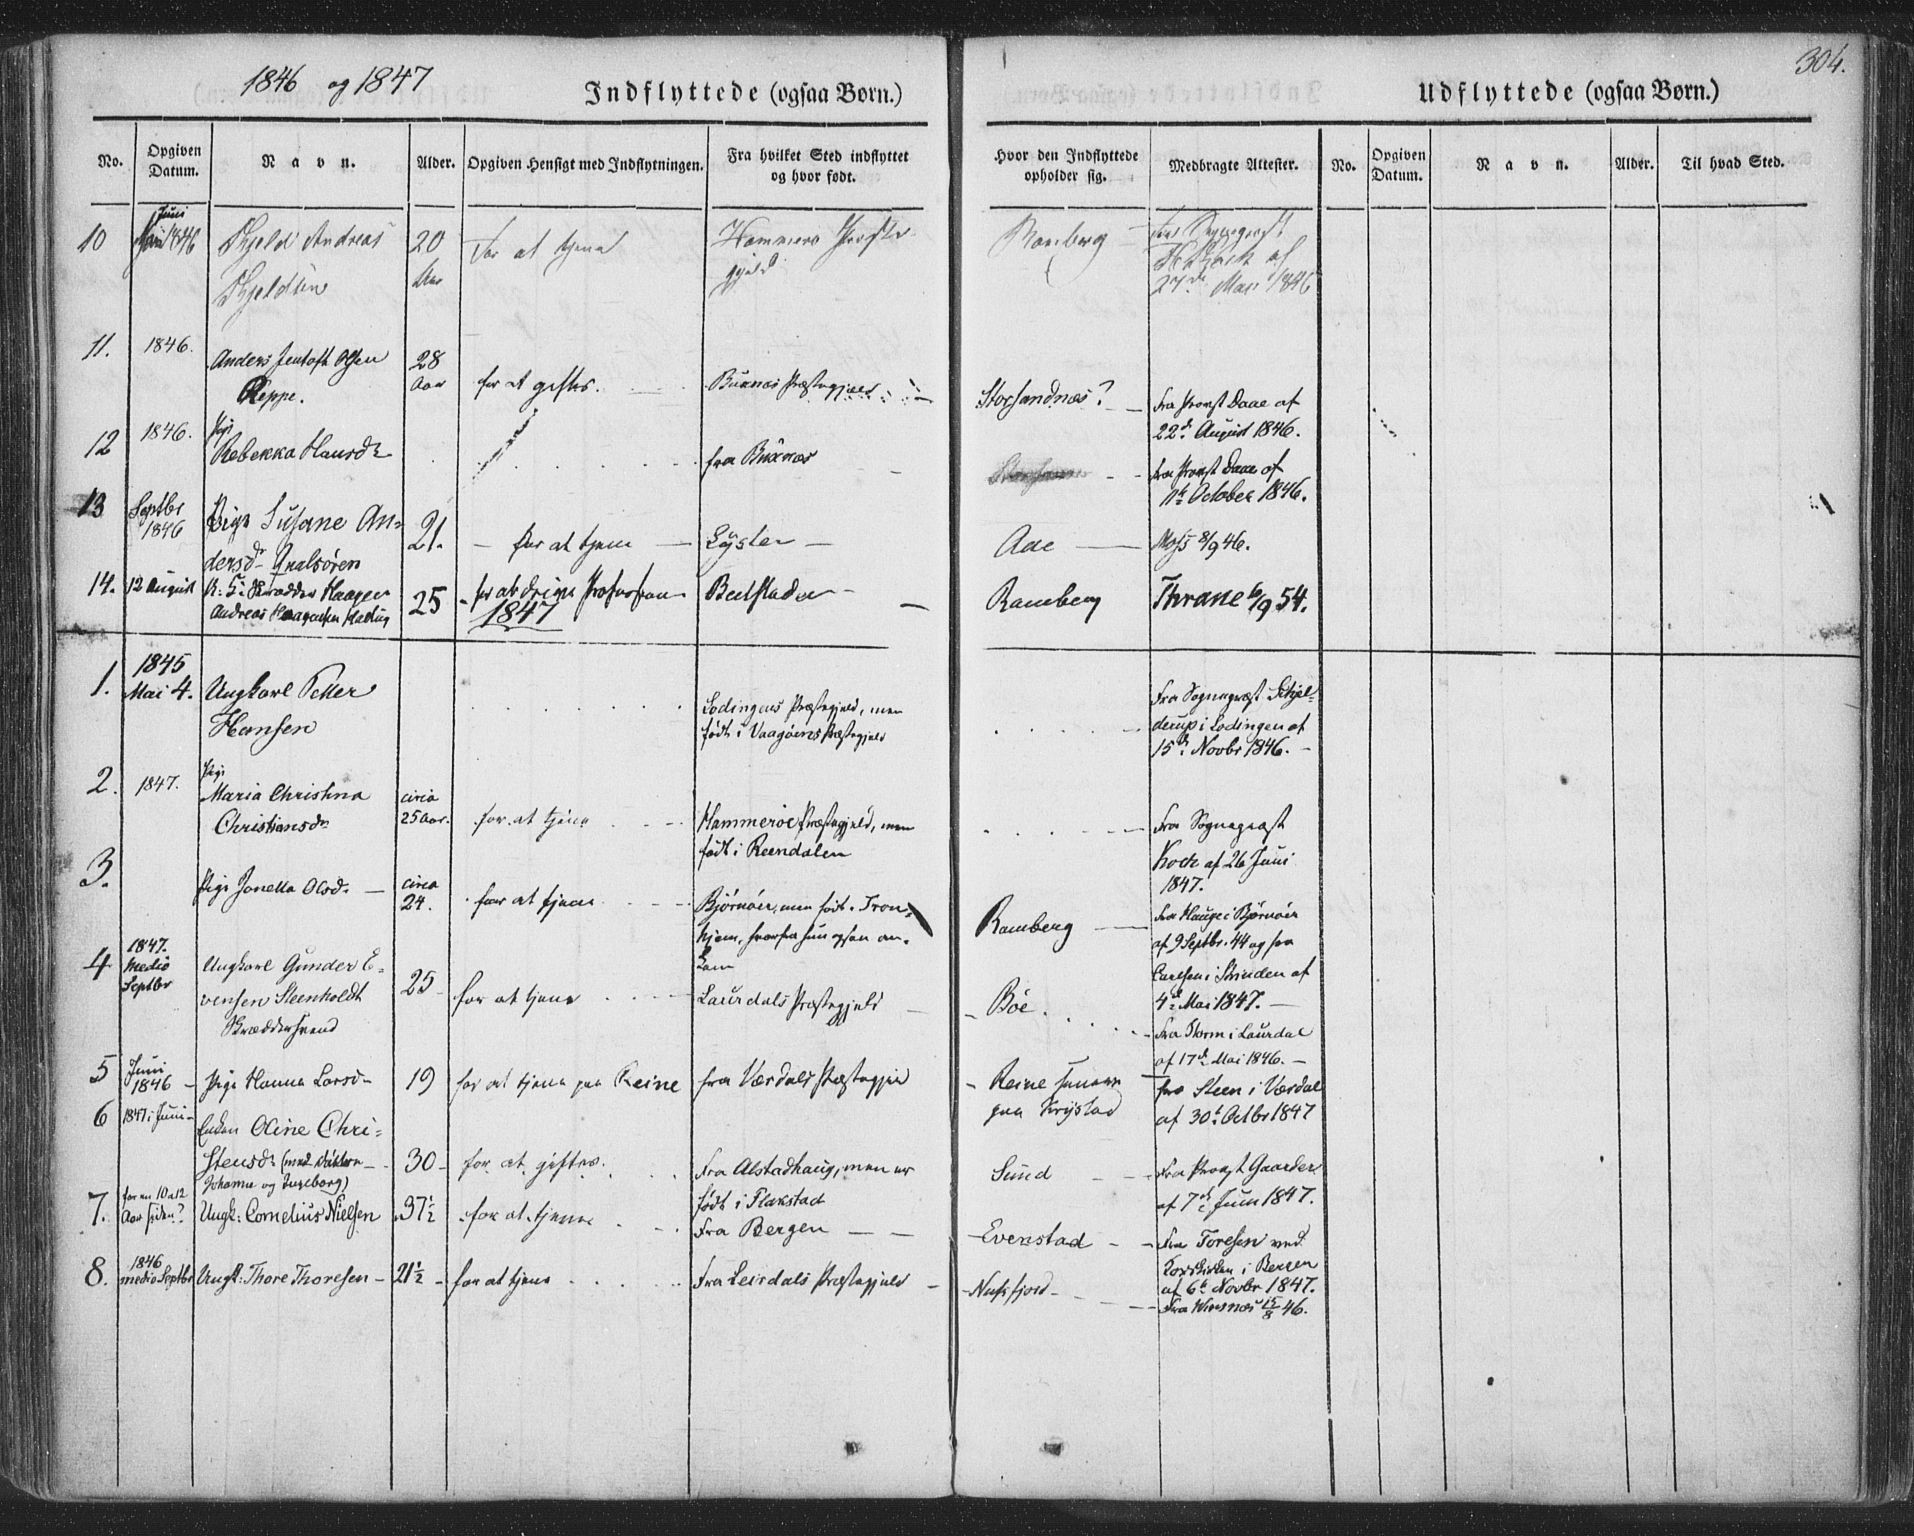 1846 og 1847
Indflyttede (ogsaa Børn.)
No.
Opgiven Datum.
Navn.
Alder.
Opgiven Hensigt med Indflytningen.
Fra hvilket Sted indflyttet og hvor født.
10
Juni 1846
Andreas
20
for at tjene
Hammerø Præste-
gjeld
11.
1846.
Anders Jentoft Olsen
Reppe.
28
Aar
for at giftes.
Buxnæs Præstegjeld
12
1846.
Pige
Rebekka Hansdr
fra Buxnæs
13
Septbr
1846
Pige Susane An-
dersdr
21.
for at tjene
Lyster
14.
12 August
Andreas
25
Beelstaden
1847
1.
1845
Mai 4.
Ungkarl Petter
Hansen
Lodingens Præstegjeld, men
født i Vaagøens Præstegjeld
2.
1847.
Pige
Maria Christina
Christiansdr
circa
25 Aar.
for at tjene
Hammerøe Præstegjeld, men
født i Reendalen
3.
Pige Jonetta Olsdr
circa
24.
for at tjene
Bjørnøer, men født i Tron-
hjem, hvorfra hun ogsaa an-
kom
4
1847.
Medio
Septbr
Ungkarl Gunder E-
vensen Steenholdt
Skræddersvend
25
for at tjene
Laurdals Præstegjeld
5
Juni
1846
Pige Hanna Larsdr
19
for at tjene paa Reine
fra Værdals Præstegjeld
6
1847 i Juni
Enken Oline Chri-
stensdr (med Døttrene
Johanna og Ingeborg)
30
for at giftes.
Fra Alstadhaug, men er
født i Flakstad
7.
for en 10 a 12
Aar siden?
Ungk: Cornelius Nielsen
37½
for at tjene
Fra Bergen
8.
1846
medio Septbr
Ungk: Thore Thoresen
21½
for at tjene
Fra Leirdals Præstegjeld
304.
Udflyttede (ogsaa Børn.)
Hvor den Indflyttede opholder sig.
Medbragte Attester.
No.
Opgiven Datum.
Navn.
Alder.
Til hvad Sted.
Ramberg
fra Sognepræst
af
27de Mai 1846
Storsandnæs?
Fra Provst Daae af
22de August 1846.
fra Provst Daae af
11te October 1846.
Moss 8/9 46.
Ramberg
Thrane 6/9 54.
Fra Sognepræst Schjel-
derup i Lodingen af
15de Novbr 1846.
Fra Sognepræst
Kock af 26 Juni
1847.
Ramberg
Fra Hauge i Bjørnøer
af 9 Septbr. 44 og fra
Carlsen i Strinden af
4de Mai 1847.
Bøe
Fra Storm i Laurdal
af 17de Mai 1846.
Reine
paa Krystad
fra Steen i Værdal
af 30te Octbr 1847
Sund
Fra Provst Gaarder
af 7de Juni 1847.
Evenstad
Fra Toresen ved
Korskirken i Bergen
af 6te Novbr 1847.
Nufsfjord
Fra 15/8 46.